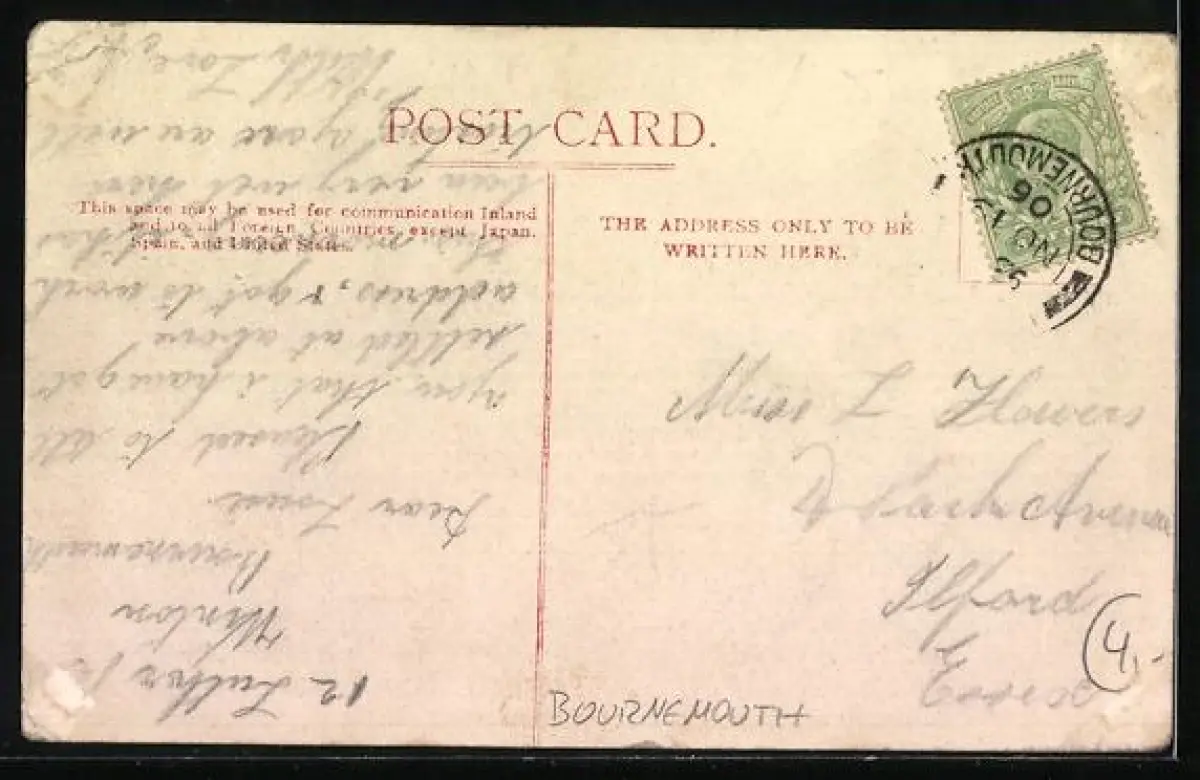 POST CARD.
This space may be used for communication Inland
and to all Foreign Countries, except Japan,
Spain, and United States.
THE ADDRESS ONLY TO BE
WRITTEN HERE.
BOURNEMOUTH
NO 12
06
Miss L Flowers
Ilford
Essex
4.-
BOURNEMOUTH
12
Winton
Bournemouth
Dear
Pleased to tell
you that i have got
settled at above
address, & got to work
been very wet here
you are well
With Love,